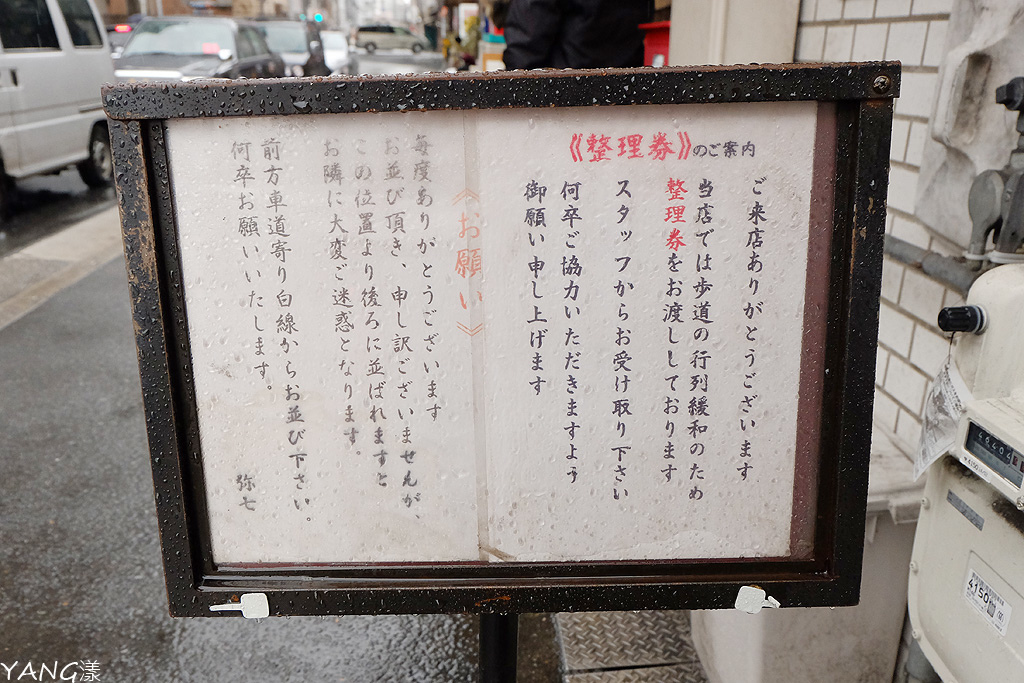 《整理券》のご案内
ご来店ありがとうございます
当店では歩道の行列緩和のため
整理券をお渡ししております
スタッフからお受け取り下さい
何卒ご協力いただきますよう
御願い申し上げます
《お願い》
毎度ありがとうございます
お並び頂き、申し訳ございませんが、
この位置より後ろに並ばれますと
お隣に大変ご迷惑となります。
前方車道寄り白線からお並び下さい。
何卒お願いいたします。
弥七
4150
YANG漾